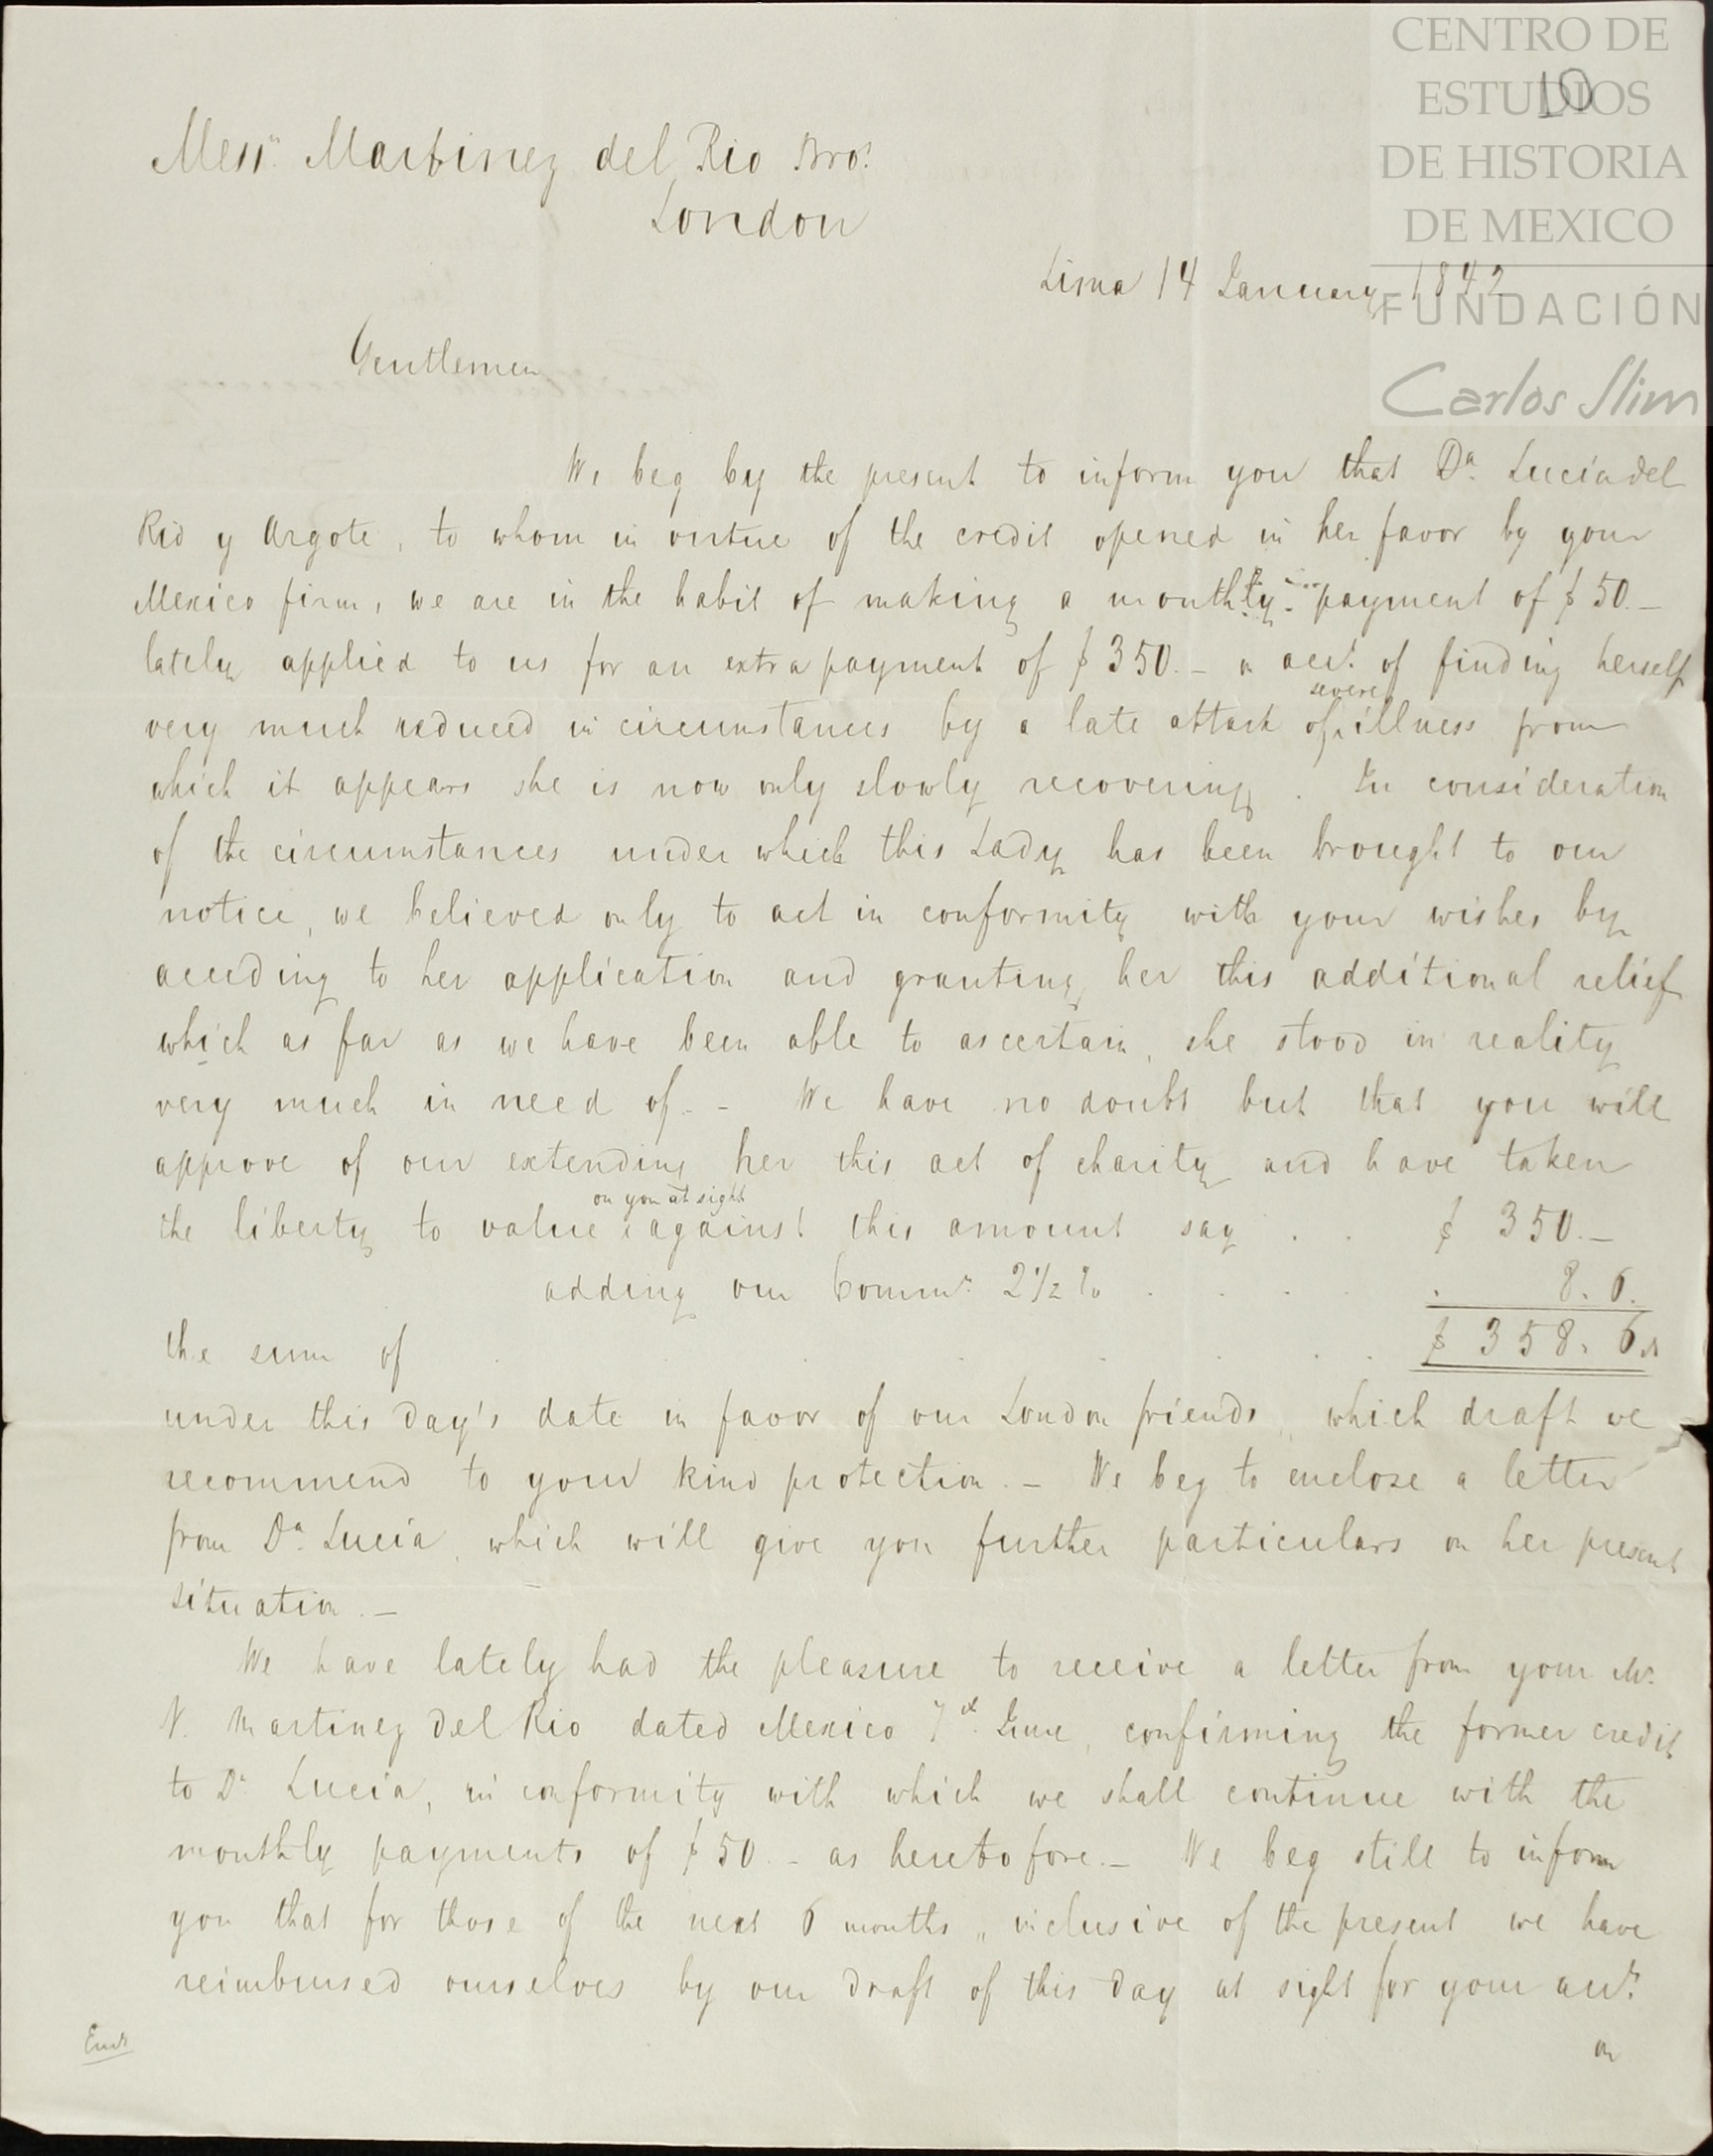 CENTRO DE
ESTUDIOS
DE HISTORIA
DE MEXICO
FUNDACIÓN
Carlos Slim
10
Messrs. Martinez del Rio Bros.
London
Lima 14 January 1842
Gentlemen
We beg by the present to inform you that Da. Lucia del
Rio y Argote, to whom in virtue of the credit opened in her favor by your
Mexico firm, we are in the habit of making a monthly payment of $ 50.—
lately applied to us for an extra payment of $ 350.— on acct. of finding herself
very much reduced in circumstances by a late attack of severe illness from
which it appears she is now only slowly recovering. In consideration
of the circumstances under which this Lady has been brought to our
notice, we believed only to act in conformity with your wishes by
acceding to her application and granting her this additional relief
which as far as we have been able to ascertain, she stood in reality
very much in need of.— We have no doubt but that you will
approve of our extending her this act of charity and have taken
the liberty to value on you at sight against this amount say . . $ 350.—
adding our Commn. 2 1/2 % . . . . 8. 6.
the sum of . . . . . . $ 358. 6rs
under this day's date in favor of our London friends, which draft we
recommend to your kind protection.— We beg to enclose a letter
from Da. Lucia, which will give you further particulars on her present
situation.—
We have lately had the pleasure to receive a letter from your Mr.
N. Martinez del Rio dated Mexico 7 June, confirming the former credit
to Da. Lucia, in conformity with which we shall continue with the
monthly payments of $ 50.— as heretofore.— We beg still to inform
you that for those of the next 6 months, inclusive of the present we have
reimbursed ourselves by our draft of this day at sight for your acct.
on